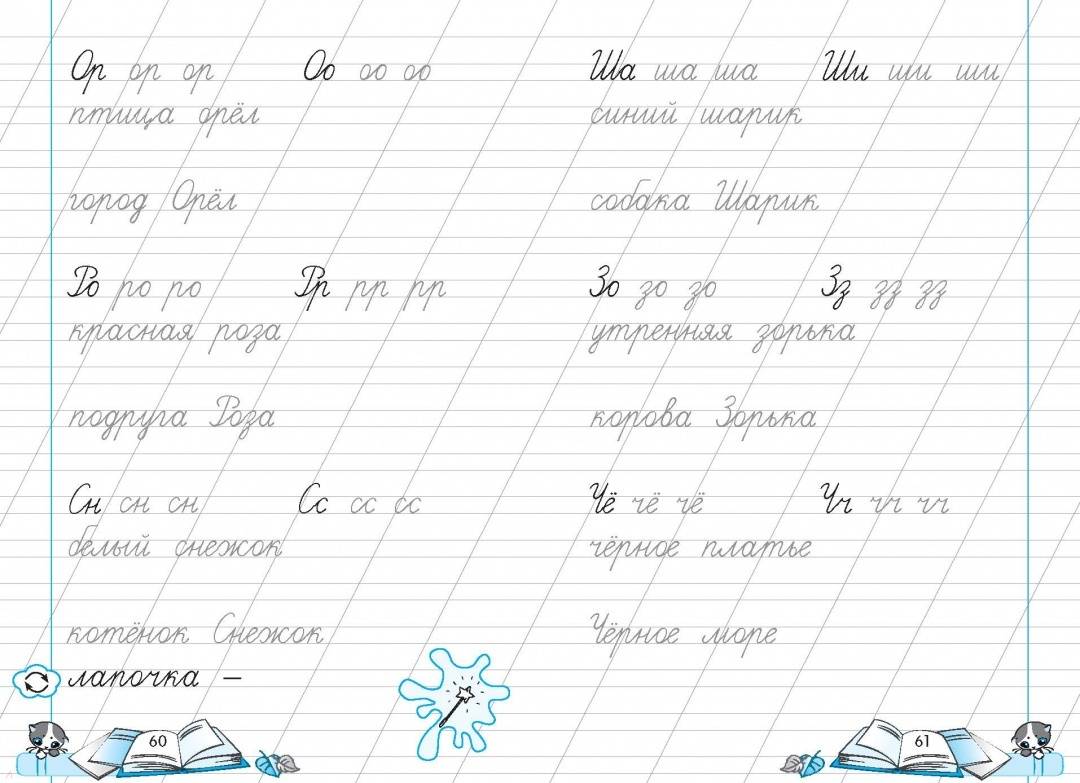 Ор ор ор Оо оо оо
птица орёл
город Орёл
Ро ро ро Рр рр рр
красная роза
подруга Роза
Сн сн сн Сс сс сс
белый снежок
котёнок Снежок
лапочка –
60
Ша ша ша Ши ши ши
синий шарик
собака Шарик
Зо зо зо Зз зз зз
утренняя зорька
корова Зорька
Чё чё чё Чч чч чч
чёрное платье
Чёрное море
61